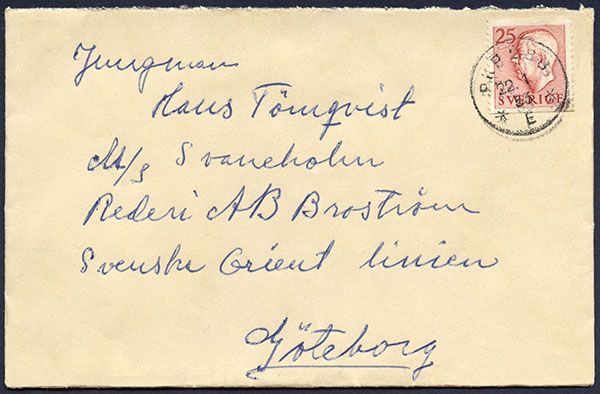 Jungman
Hans Törnqvist
M/S Svaneholm
Rederi AB Broström
Svenska Orient linien
Göteborg
25
SVERIGE
PKP
22.1
53
E